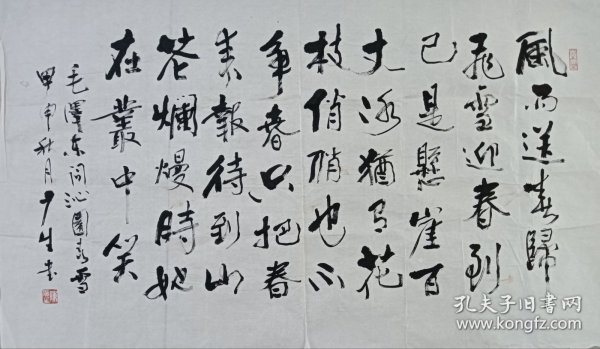 風雨送春歸
飛雪迎春到
已是懸崖百
丈冰猶有花
枝俏俏也不
争春只把春
来報待到山
花爛熳時她
在叢中笑
毛澤东詞沁園春雪
甲申秋月少生书
孔夫子旧书网
www.kongfz.com